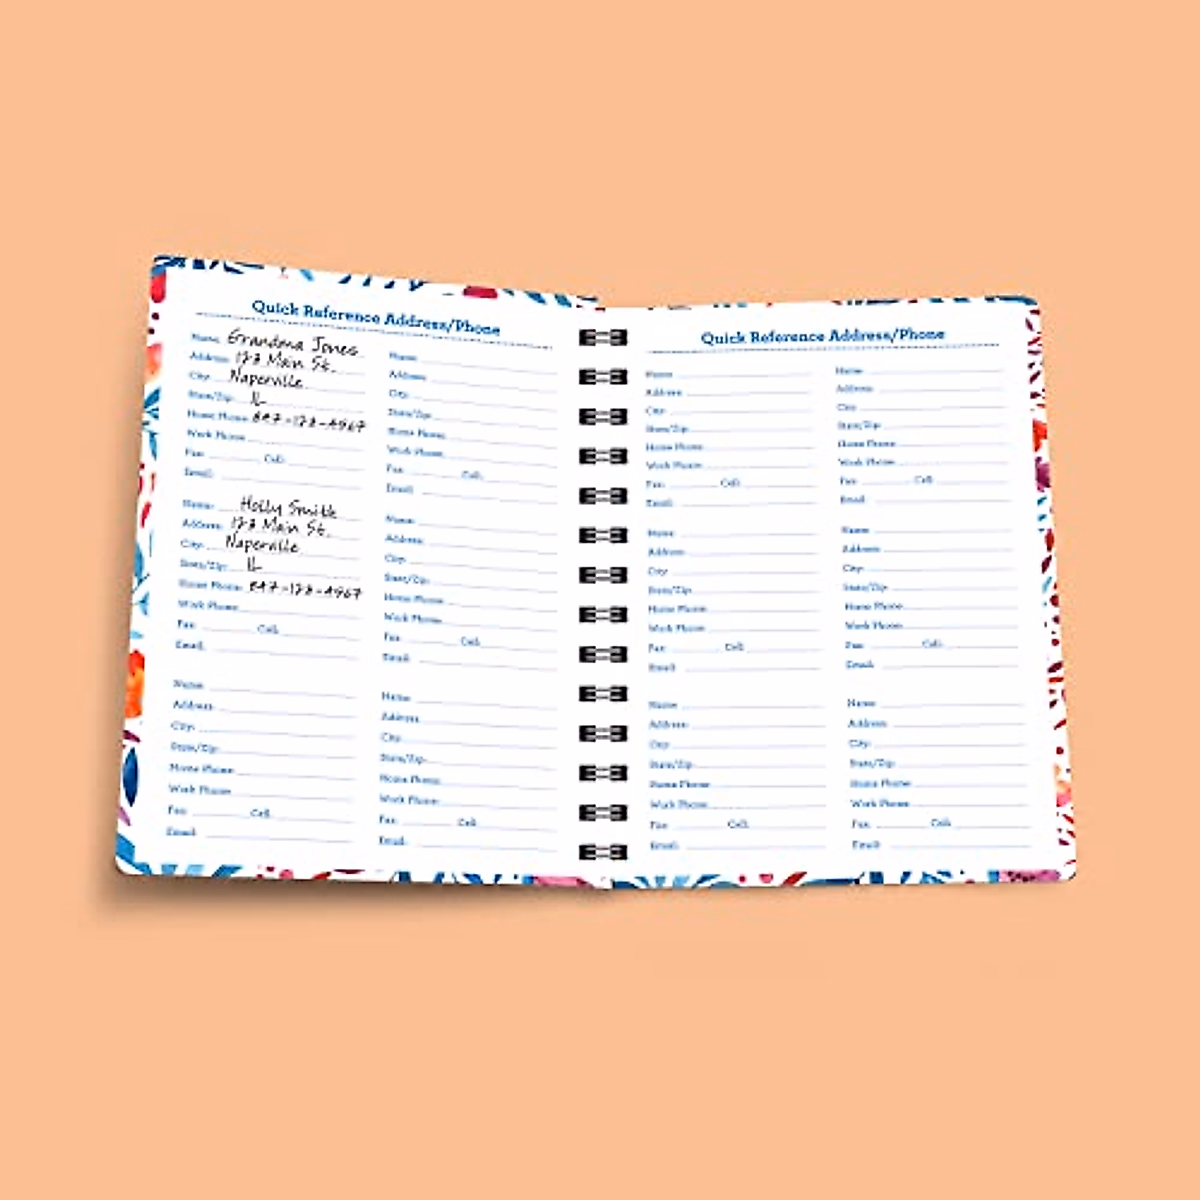 Quick Reference Address/Phone
Name: Grandma Jones
Address: 123 Main St.
City: Naperville
State/Zip: IL
Home Phone: 847-123-4567
Work Phone:
Fax: Cell:
Email:
Name: Holly Smith
Address: 123 Main St.
City: Naperville
State/Zip: IL
Home Phone: 847-123-4567
Work Phone:
Fax: Cell:
Email:
Name:
Address:
City:
State/Zip:
Home Phone:
Work Phone:
Fax: Cell:
Email:
Name:
Address:
City:
State/Zip:
Home Phone:
Work Phone:
Fax: Cell:
Email:
Name:
Address:
City:
State/Zip:
Home Phone:
Work Phone:
Fax: Cell:
Email:
Name:
Address:
City:
State/Zip:
Home Phone:
Work Phone:
Fax: Cell:
Email:
Quick Reference Address/Phone
Name:
Address:
City:
State/Zip:
Home Phone:
Work Phone:
Fax: Cell:
Email:
Name:
Address:
City:
State/Zip:
Home Phone:
Work Phone:
Fax: Cell:
Email:
Name:
Address:
City:
State/Zip:
Home Phone:
Work Phone:
Fax: Cell:
Email:
Name:
Address:
City:
State/Zip:
Home Phone:
Work Phone:
Fax: Cell:
Email:
Name:
Address:
City:
State/Zip:
Home Phone:
Work Phone:
Fax: Cell:
Email:
Name:
Address:
City:
State/Zip:
Home Phone:
Work Phone:
Fax: Cell:
Email: